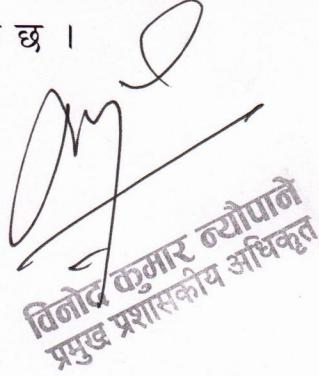 छ ।
विनोद कुमार न्यौपाने
प्रमुख प्रशासकीय अधिकृत